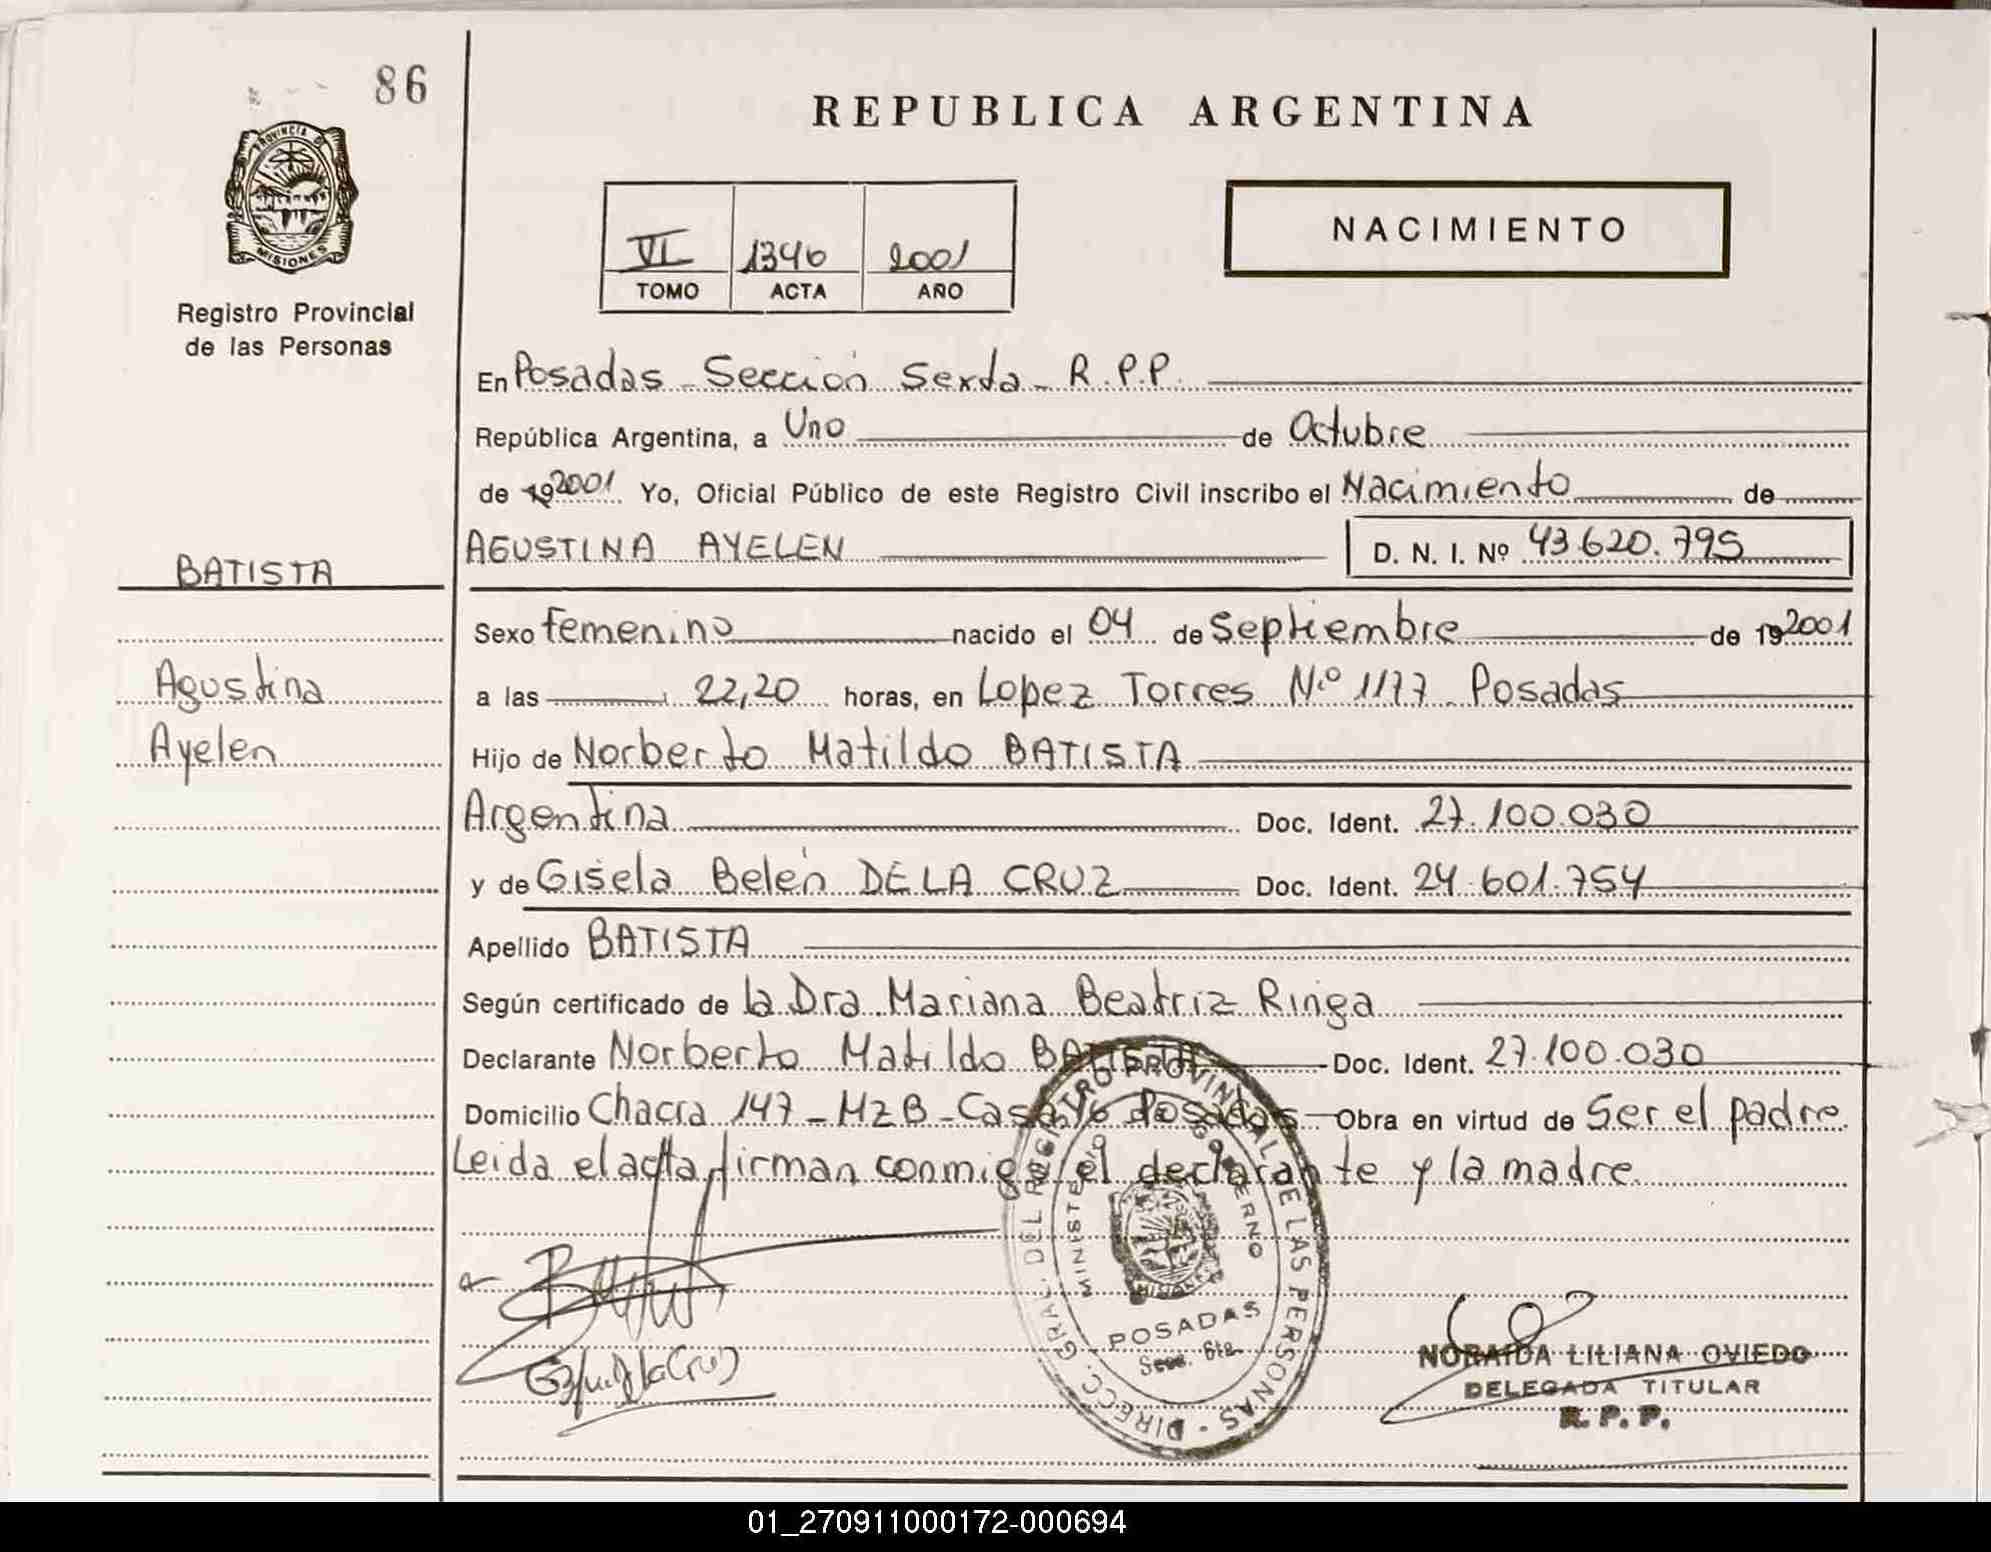 86
REPUBLICA ARGENTINA
PROVINCIA DE
MISIONES
Registro Provincial
de las Personas
NACIMIENTO
VI 1346 2001
TOMO ACTA AÑO
En Posadas - Sección Sexta - R.P.P.
República Argentina, a Uno de Octubre
de 19 2001 Yo, Oficial Público de este Registro Civil inscribo el Nacimiento de
AGUSTINA AYELEN D. N. I. Nº 43.620.795
BATISTA
Sexo femenino nacido el 04 de Septiembre de 19 2001
Agustina
a las 22,20 horas, en Lopez Torres N.º 1177 - Posadas
Ayelen
Hijo de Norberto Matildo BATISTA
Argentina Doc. Ident. 27.100.030
y de Gisela Belén DE LA CRUZ Doc. Ident. 24.601.754
Apellido BATISTA
Según certificado de la Dra. Mariana Beatriz Ringa
Declarante Norberto Matildo BATISTA Doc. Ident. 27.100.030
Domicilio Chacra 147 - Mz B - Casa 16 Posadas Obra en virtud de Ser el padre.
Leida el acta firman conmigo el declarante y la madre.
DIRECC. GRAL. DEL REGISTRO PROVINCIAL DE LAS PERSONAS
MINISTERIO DE GOBIERNO
MISIONES
POSADAS
Secc. 6ta.
NORAIDA LILIANA OVIEDO
DELEGADA TITULAR
R. P. P.
01_270911000172-000694